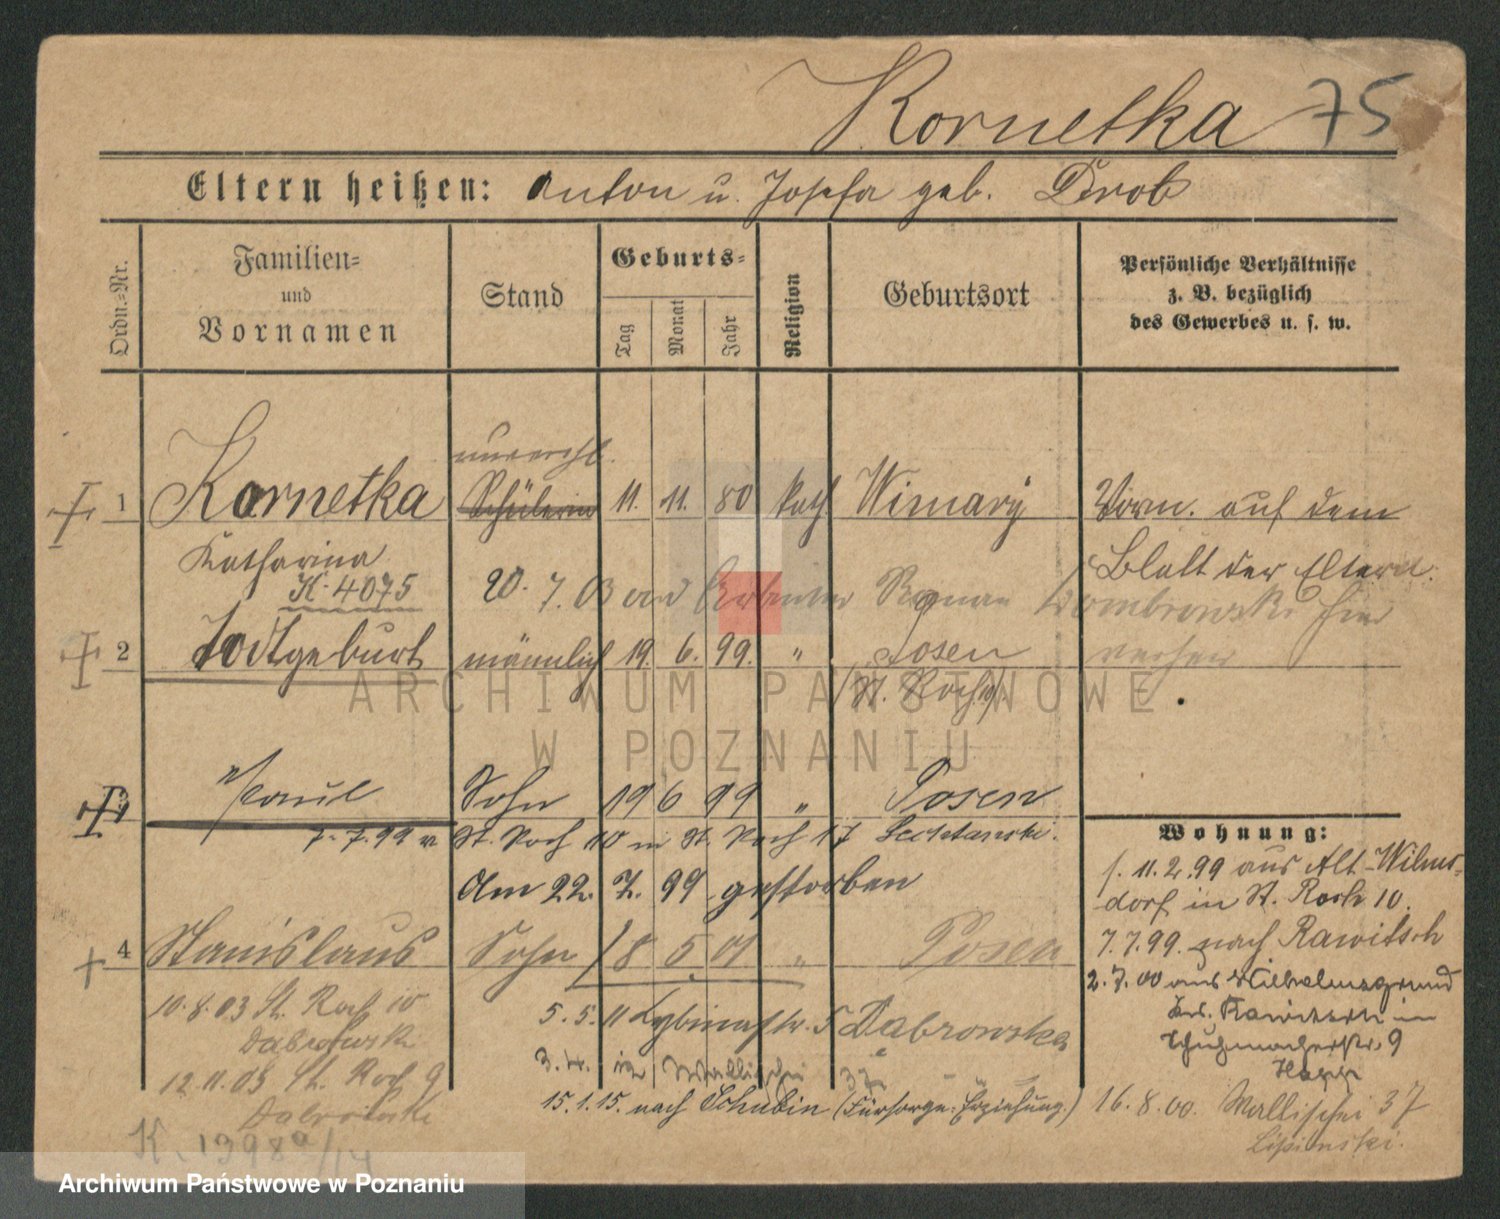 Kornetka 75
Eltern heißen: Anton u. Josefa geb. Drob
Ordn.-Nr.
Familien- und Vornamen
Stand
Geburts-
Tag Monat Jahr
Religion
Geburtsort
Persönliche Verhältnisse
z. B. bezüglich
des Gewerbes u. s. w.
unverehl.
1 Kornetka Schülerin 11. 11. 80 kath. Winiary Vorn. auf dem
Katharina Blatt der Eltern.
K. 4075
20. 7. 03 Roman Dombrowski hier
2 Todtgeburt männlich 19. 6. 99. " Posen
(St. Roch)
ARCHIWUM PAŃSTWOWE
W POZNANIU
3 Paul Sohn 19 6 99 " Posen
7. 7. 99 v. St. Roch 10 in St. Roch 17
Am 22. 7. 99 gestorben
4 Stanislaus Sohn 18 5 01 " Posen
10. 8. 03 St. Roch 10
Dabrowska
12. 11. 03 St. Roch 9
Dabrowska
5. 5. 11 Lybinastr. 5 Dabrowska
3. 4. Wallischei 37
15. 1. 15. nach Schubin (Fürsorge-Erziehung.)
Wohnung:
f. 11. 2. 99 aus Alt-Wilms-
dorf in St. Roch 10.
7. 7. 99. nach Rawitsch
2. 7. 00 aus Wilhelmsgrund
Krs. Rawitsch in
Schuhmacherstr. 9
16. 8. 00. Wallischei 37
Lipinski.
K. 1398a/14
Archiwum Państwowe w Poznaniu